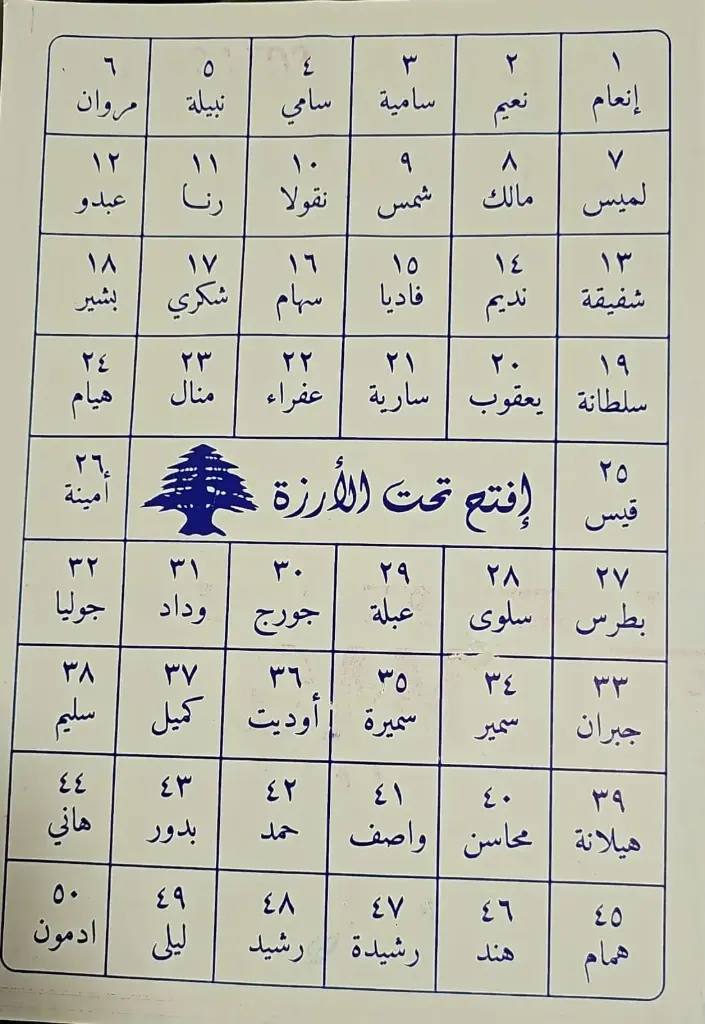 ١ ٢ ٣ ٤ ٥ ٦
إنعام نعيم سامية سامي نبيلة مروان
٧ ٨ ٩ ١٠ ١١ ١٢
لميس مالك شمس نقولا رنا عبدو
١٣ ١٤ ١٥ ١٦ ١٧ ١٨
شفيقة نديم فاديا سهام شكري بشير
١٩ ٢٠ ٢١ ٢٢ ٢٣ ٢٤
سلطانة يعقوب سارية عفراء منال هيام
٢٥ ٢٦
قيس إفتح تحت الأرزة أمينة
٢٧ ٢٨ ٢٩ ٣٠ ٣١ ٣٢
بطرس سلوى عبلة جورج وداد جوليا
٣٣ ٣٤ ٣٥ ٣٦ ٣٧ ٣٨
جبران سمير سميرة أوديت كميل سليم
٣٩ ٤٠ ٤١ ٤٢ ٤٣ ٤٤
هيلانة محاسن واصف حمد بدور هاني
٤٥ ٤٦ ٤٧ ٤٨ ٤٩ ٥٠
همام هند رشيدة رشيد ليلى ادمون